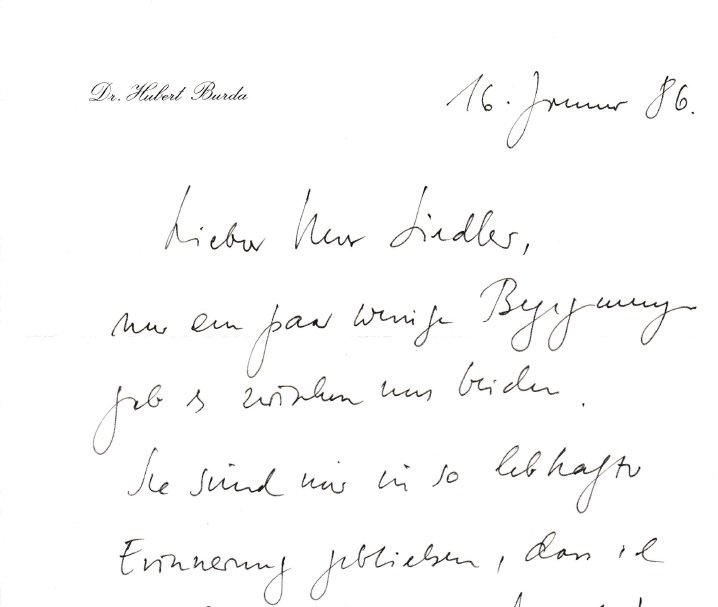 Dr. Hubert Burda
16. Januar 86.
Lieber Herr Siedler,
nur ein paar wenige Begegnungen
gab es zwischen uns beiden.
Sie sind mir in so lebhafter
Erinnerung geblieben, dass ich